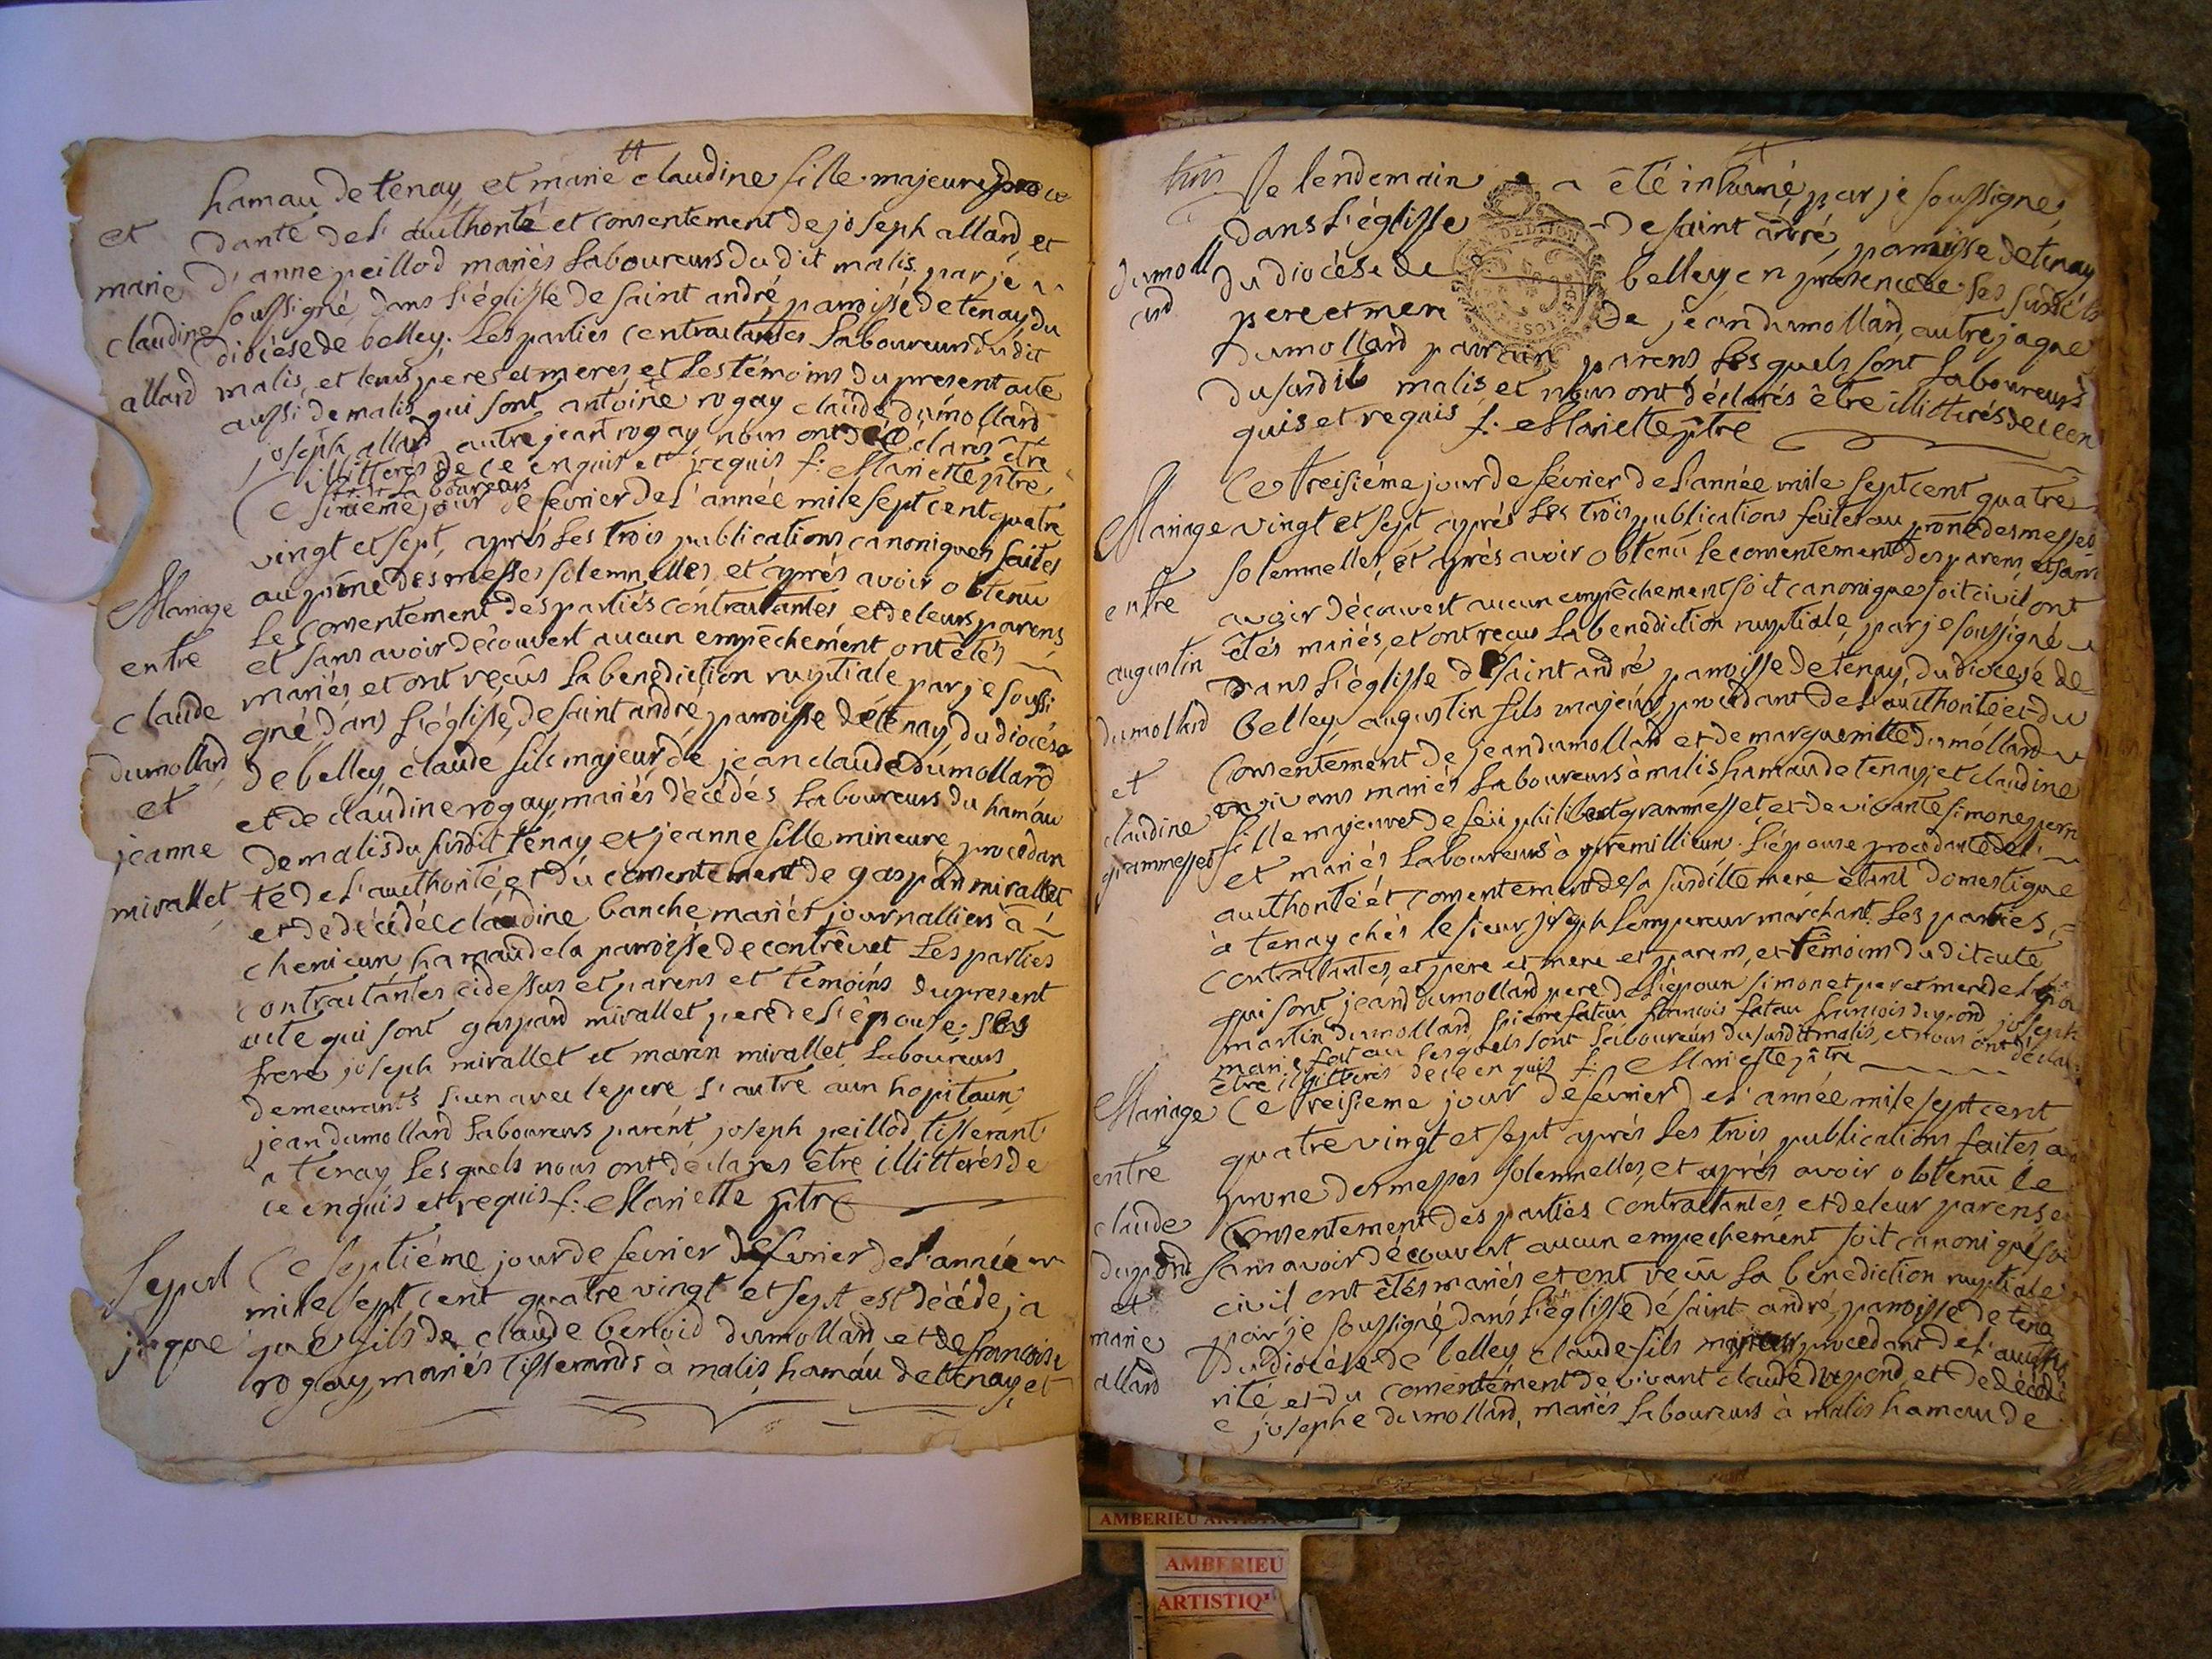 hamau de tenay et marie claudine fille majeure proce
et dante de l'authorité et consentement de joseph allard et
marie d'anne peillod mariés laboureurs du dit malis par je
claudine soussigné dans l'églisse de saint andré paroisse de tenay du
diocèse de belley. Les parties contractantes laboureurs du dit
allard malis et leurs peres et meres et les témoins du present acte
aussi de malis qui sont antoine rogay claude dumollard
joseph allard autre jean rogay nous ont déclarés être
illitterés de ce enquis et requis f: Mariette ptre
laboureurs
Ce siziéme jour de fevrier de l'année mile sept cent quatre
vingt et sept, après les trois publications canoniques faites
au prone des messes solemnelles et après avoir obtenu
Mariage le consentement des parties contractantes et de leurs parens
entre et sans avoir découvert aucun empêchement ont êtés
mariés et ont reçûs la benediction nuptiale par je soussi
claude gné dans l'églisse de saint andré paroisse de tenay du diocése
dumollard de belley claude fils majeur de jean claude dumollard
et et de claudine rogay mariés dècédés laboureurs du hamau
jeanne de malis du susdit tenay et jeanne fille mineure procedan
mirallet te de l'authorité et du consentement de gaspard mirallet
et de dècédée claudine banche mariés journalliers à
chenieun hamau de la paroisse de contrêvet Les parties
contractantes cidessus et parens et témoins du present
acte qui sont gaspard mirallet pere de l'épouse, ses
frere joseph mirallet et marin mirallet laboureurs
demeurants l'un avec le pere l'autre aux hopitaux
jean dumollard laboureurs parent joseph peillod tisserant
à tenay lesquels nous ont déclarés être illitterés de
ce enquis et requis f: Mariette ptre
Sepul Ce septiéme jour de fevrier de fevrier de l'année
mile sept cent quatre vingt et sept est dècéde ja
jaque que fils de claude benoid dumollard et de francoise
rogay mariés tisserands à malis hamau de tenay, et
le lendemain a êté inhumé par je soussigné
dans l'églisse de saint andré paroisse de tenay
dumoll du diocèse de belley en presence de ses susdits
ard pere et mere de jean dumollard, autre jaque
dumollard parrain parens lesquels sont laboureurs
du susdit malis et nous ont déclarés être illitterés de ce en
quis et requis f: Mariette ptre
Ce treiziéme jour de février de l'année mile sept cent quatre
Mariage vingt et sept après les trois publications faites au prone des messes
solemnelles, et après avoir obtenû le consentement des parens et sans
entre avoir découvert aucun empêchement soit canonique soit civil ont
êtés mariés, et ont reçus la benediction nuptiale par je soussigné
augustin dans l'églisse de saint andré paroisse de tenay, du diocese de
dumollard belley, augustin fils majeur procedant de l'authorité et du
consentement de jean dumollard et de marguerite dumollard
et en vivans mariés laboureurs à malis hamau de tenay et claudine
claudine fille majeure de feu philibert grammesset et de vivante simone
grammesset et mariés laboureurs à premillieux. L'épouse procedante de l'
authorité et consentement de sa susditte mere étant domestique
à tenay chés le sieur joseph lempereur marchant. Les parties
contractantes, et pere et mere et parens, et témoins du dit acte
qui sont jean dumollard pere de l'époux
martin dumollard, pierre fatau francois fatau francois dupond joseph
marie fatau lesquels sont laboureurs du susdit malis, et nous ont déclarés
être illitterés de ce enquis f: Mariette ptre
Mariage Ce treizieme jour de fevrier de l'année mile sept cent
quatre vingt et sept après les trois publications faites au
entre prone des messes solemnelles, et après avoir obtenû le
claude consentement des parties contractantes et de leur parens e
dupond sans avoir découvert aucun empechement soit canonique soi
et civil ont êtés mariés et ont reçû la benediction nuptiale
marie par je soussigné dans l'églisse de saint andré paroisse de tena
du diocèse de belley claude fils majeur procedant de l'autho
allard rité et du consentement de vivant claude dupond et de dècédé
e josephe dumollard, mariés laboureurs à malis hamau de
AMBERIEU
AMBERIEU
ARTISTIQ